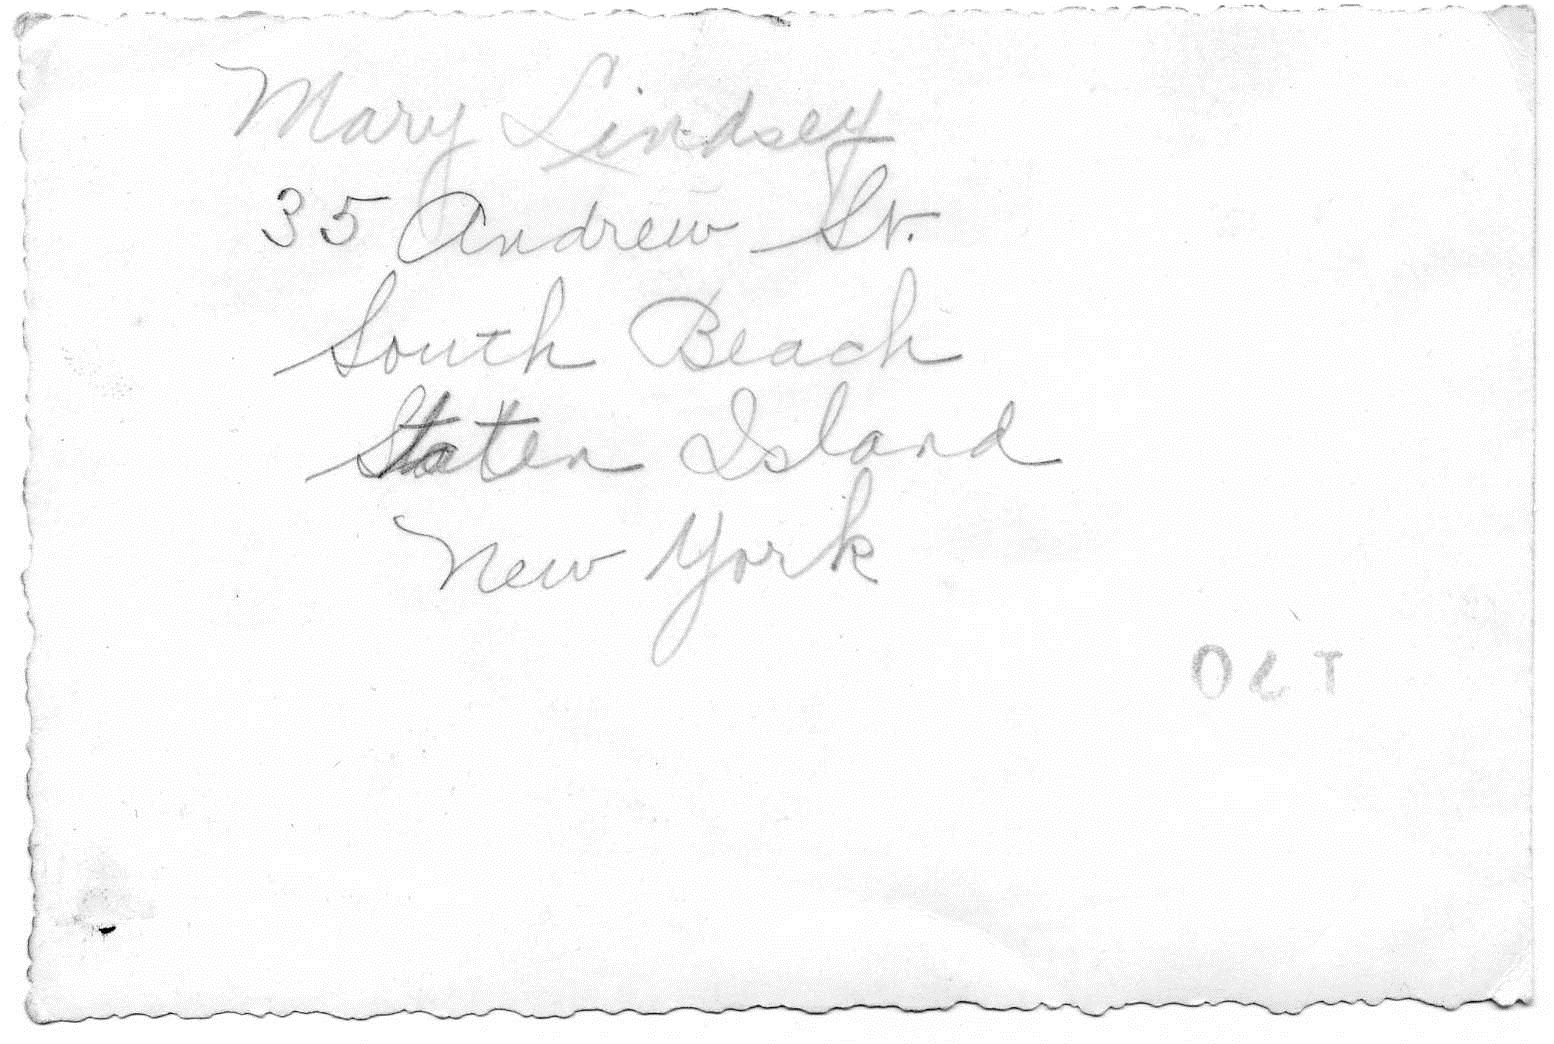 Mary Lindsey
35 Andrew St.
South Beach
Staten Island
New York
OCT